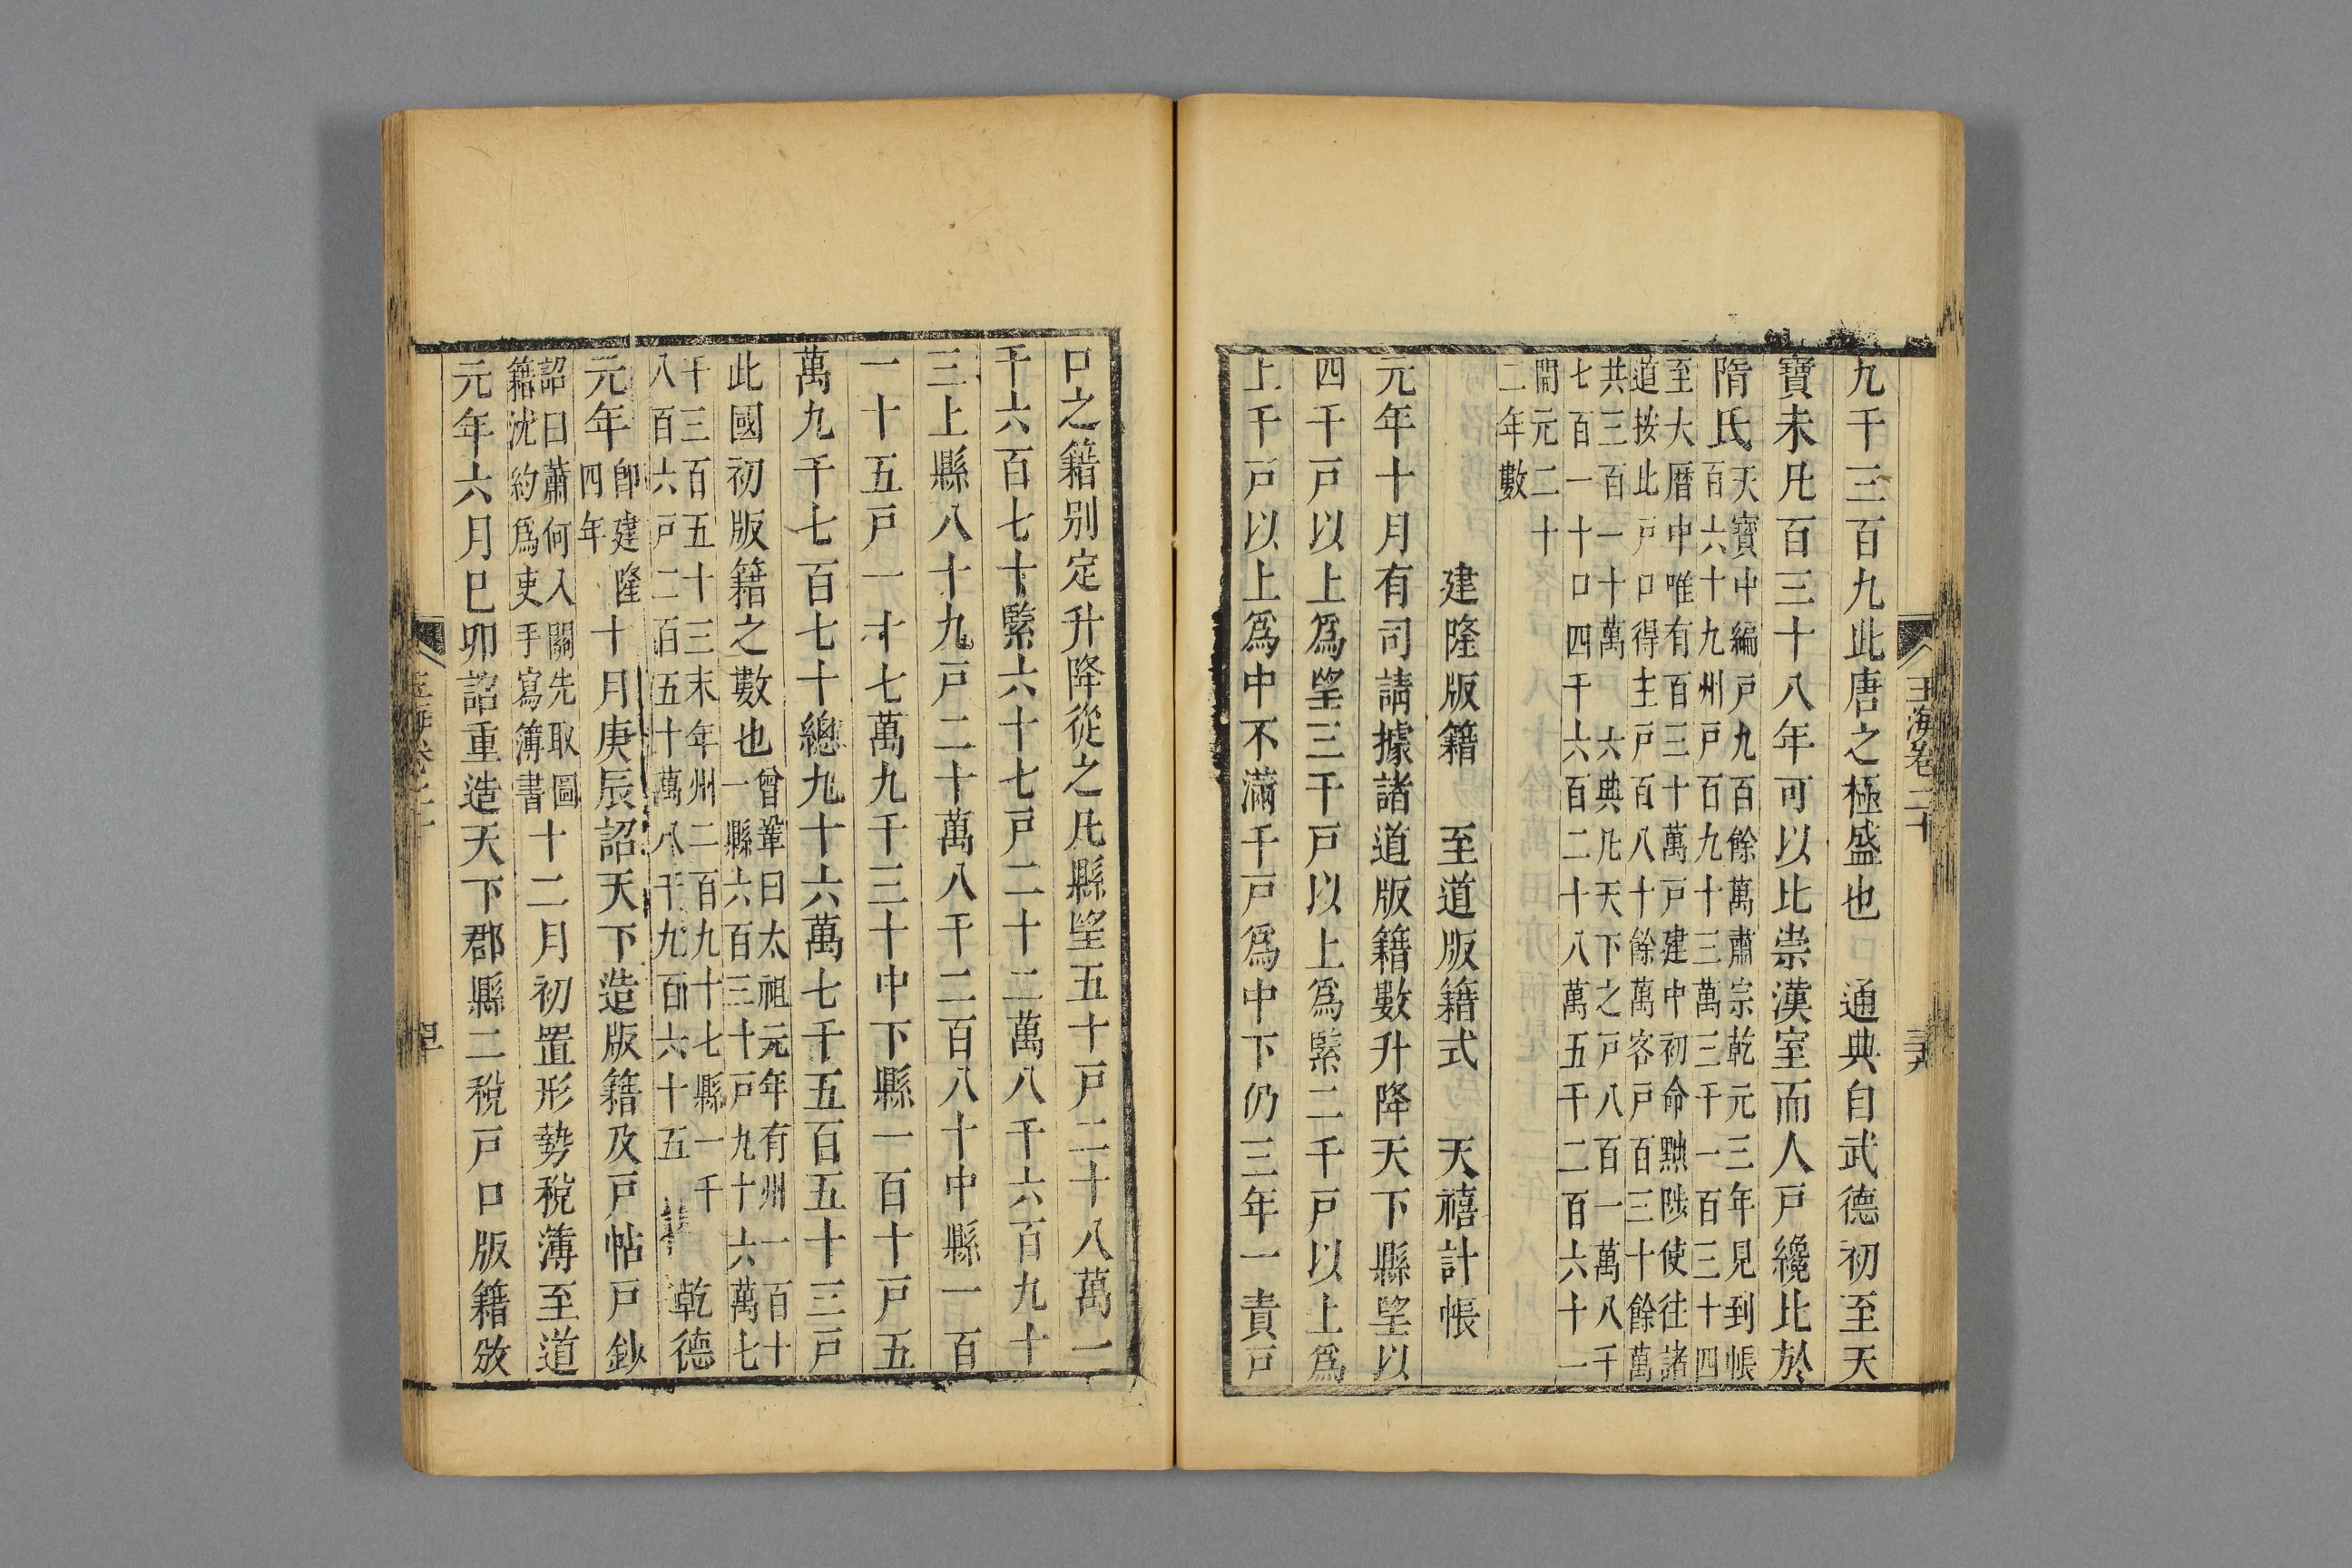 九千三百九此唐之極盛也　通典自武德初至天
寶末凡百三十八年可以比崇漢室而人戶纔比於
隋氏
天寶中編戶九百餘萬肅宗乾元三年見到帳
百六十九州戶百九十三萬三千一百三十四
至大曆中唯有百三十萬戶建中初命黜陟使往諸
道按此戶口得主戶百八十餘萬客戶百三十餘萬
共三百一十萬　六典凡天下之戶八百一萬八千
七百一十口四千六百二十八萬五千二百六十一
開元二十
二年數
建隆版籍　至道版籍式　天禧計帳
元年十月有司請據諸道版籍數升降天下縣望以
四千戶以上爲望三千戶以上爲緊二千戶以上爲
上千戶以上爲中不滿千戶爲中下仍三年一責戶
玉海卷二十
口之籍别定升降從之凡縣望五十戶二十八萬一
千六百七十緊六十七戶二十二萬八千六百九十
三上縣八十九戶二十萬八千二百八十中縣一百
一十五戶一十七萬九千三十中下縣一百十戶五
萬九千七百七十總九十六萬七千五百五十三戶
此國初版籍之數也
曾鞏曰太祖元年有州一百十
一縣六百三十戶九十六萬七
千三百五十三末年州二百九十七縣一千
八百六戶二百五十萬八千九百六十五
乾德
元年
卽建隆
四年
十月庚辰詔天下造版籍及戶帖戶鈔
詔曰蕭何入關先取圖
籍沈約爲吏手寫簿書
十二月初置形勢稅簿至道
元年六月巳卯詔重造天下郡縣二稅戶口版籍放